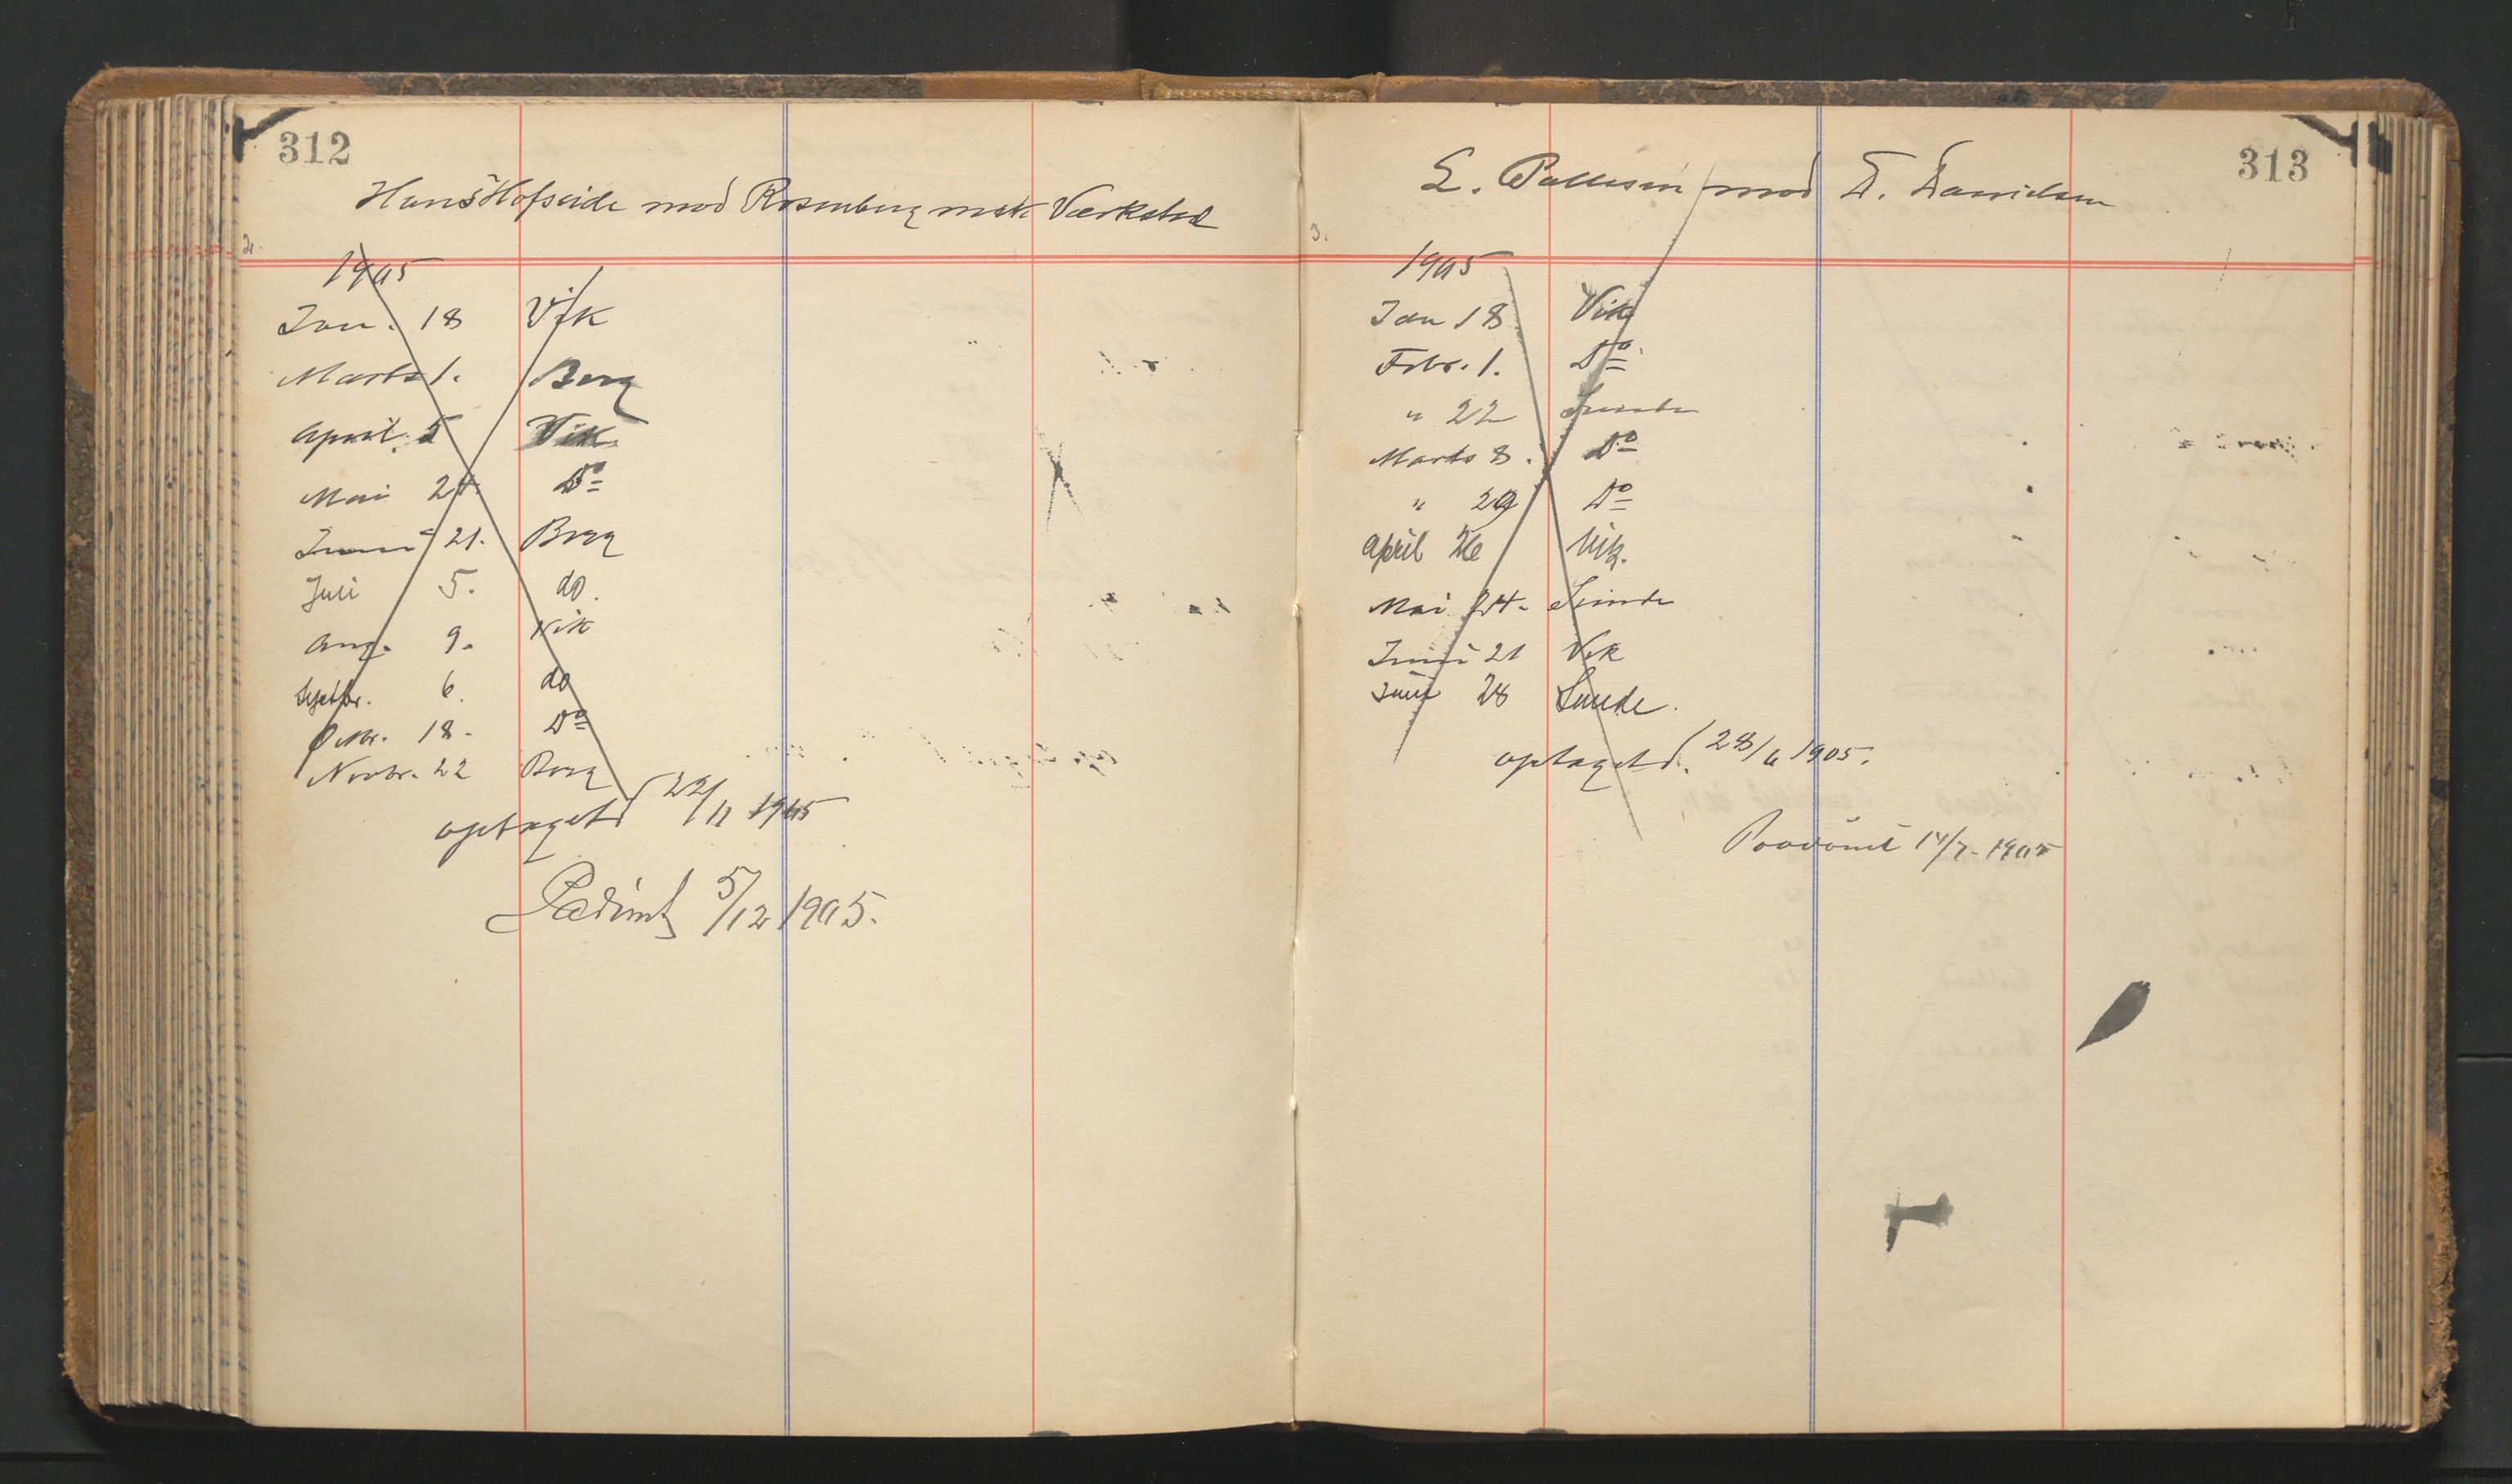 312
Hans Hofseide mod Rosenberg mek Værksted
2.
1905
Jan. 18 Vik
Marts 1. Berg
April 5 Vik.
Mai 24. Do
Juni 21. Berg
Juli 5. do.
Aug. 9. Vik
Septbr. 6. do
Octbr. 18. Do
Novbr. 22 Berg
optaget 22/11 1905
Pådömt 5/12 1905.
313
E. Pallesen mod D. Danielsen
3.
1905
Jan 18 Vik
Febr. 1. Do
" 22 Sunde
Marts 8. Do
" 29 Do
April 26 Vik.
Mai 24. Sunde
Juni 21 Vik
Juni 28 Sunde.
optaget 28/6 1905.
Paadömt 14/7-1905